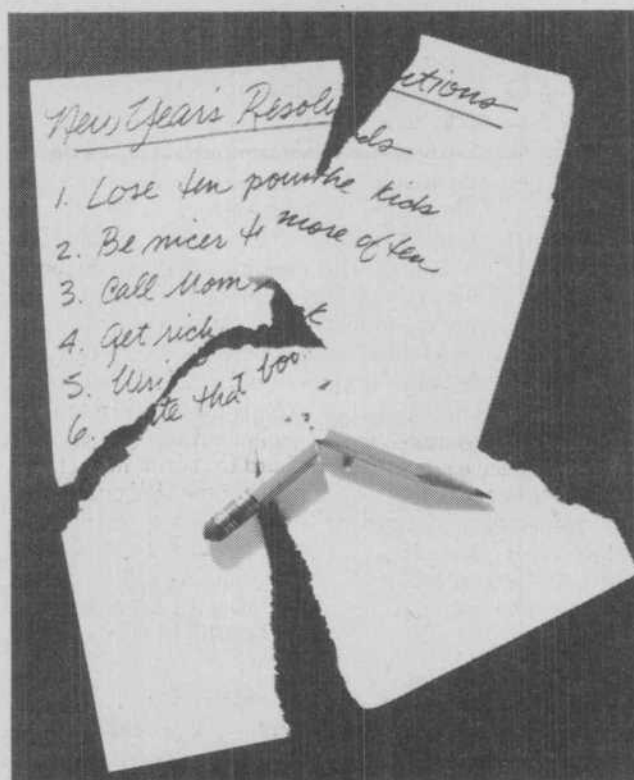 New Year's Resolutions
1. Lose ten pounds
2. Be nicer to the kids
3. Call Mom more often
4. Get rich
5. Wri
6. te that boo